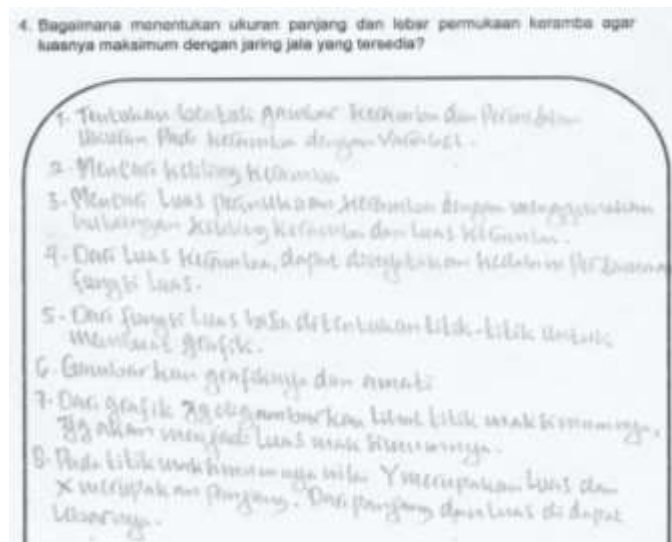 4. Bagaimana menentukan ukuran panjang dan lebar permukaan keramba agar
luasnya maksimum dengan jaring jala yang tersedia?
1. Tentukan bentuk gambar keramba dan
ukuran pada keramba dengan variabel.
2. Mencari keliling keramba
3. Mencari luas permukaan keramba dengan menggunakan
hubungan keliling keramba dan luas keramba.
4. Dari luas keramba, dapat kedalam persamaan
fungsi luas.
5. Dari fungsi luas bisa ditentukan titik-titik untuk
membuat grafik.
6. Gambarkan grafiknya dan amati
7. Dari grafik yg digambarkan lihat titik maksimumnya,
yg akan menjadi luas maksimumnya.
8. Pada titik maksimumnya nilai Y merupakan luas dan
X merupakan panjang. Dari panjang dan luas di dapat
lebarnya.